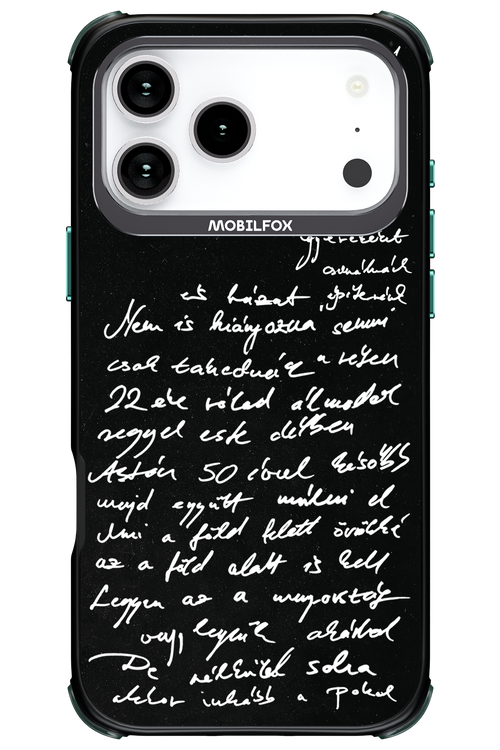 MOBILFOX
gyereket
csinálnánk
és házat építenénk
Nem is hiányozna semmi
csak takednánk a réten
22 éve rólad álmodok
reggel este délben
Aztán 50 évvel később
majd együtt múlni el
Ami a föld felett örökké
az a föld alatt is kell
Legyen az a mennyország
vagy legyünk akárhol
De nélküled soha
akkor inkább a Pokol